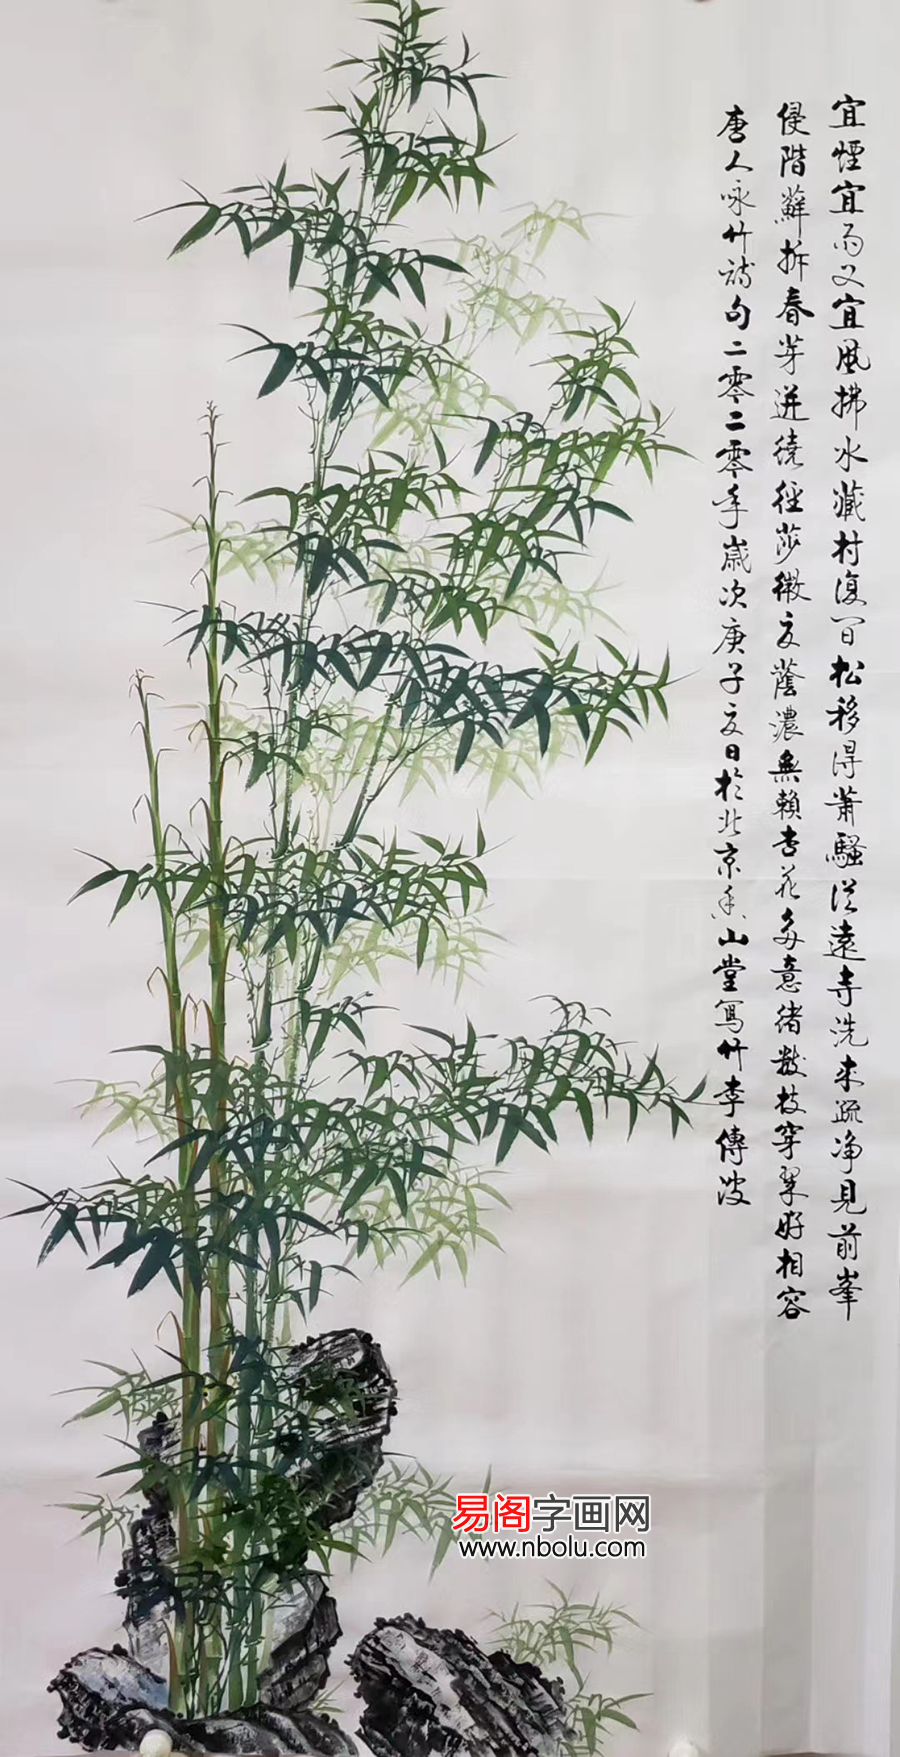 宜煙宜雨又宜風拂水藏村復間松移得蕭騷從遠寺洗來疏淨見前峯
侵階蘚拆春芽迸繞徑莎微夏蔭濃無賴杏花多意緒數枝穿翠好相容
唐人咏竹詩句二零二零年歲次庚子夏日於北京香山堂寫竹李傳波
易阁字画网
www.nbolu.com